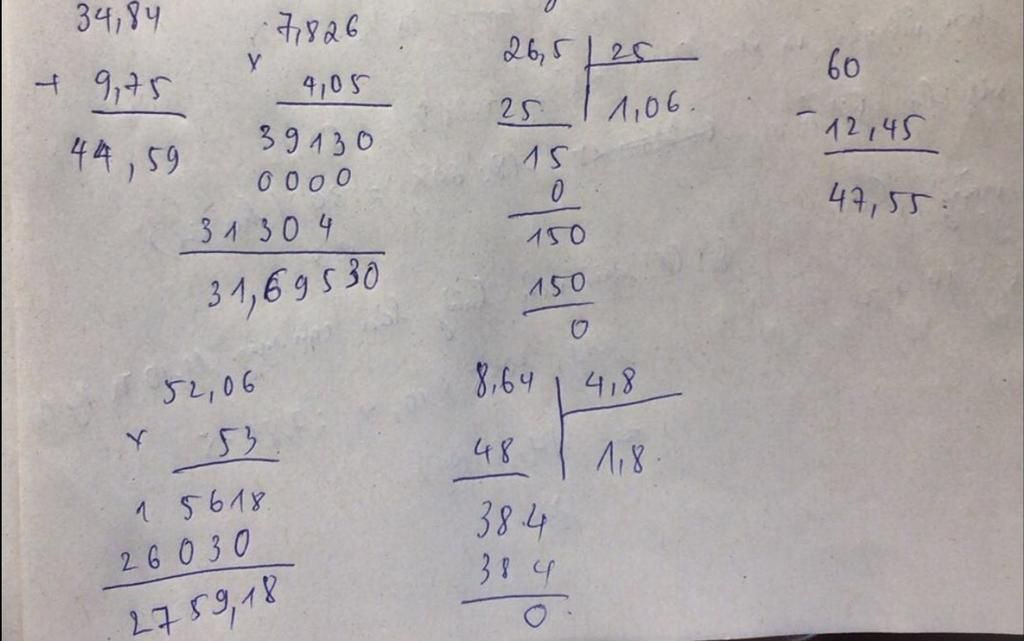 34,84
+ 9,75
44,59
7,826
× 4,05
39130
0000
31304
31,69530
26,5 | 25
25 | 1,06
15
0
150
150
0
60
- 12,45
47,55
52,06
× 53
15618
26030
2759,18
8,64 | 4,8
48 | 1,8
384
384
0